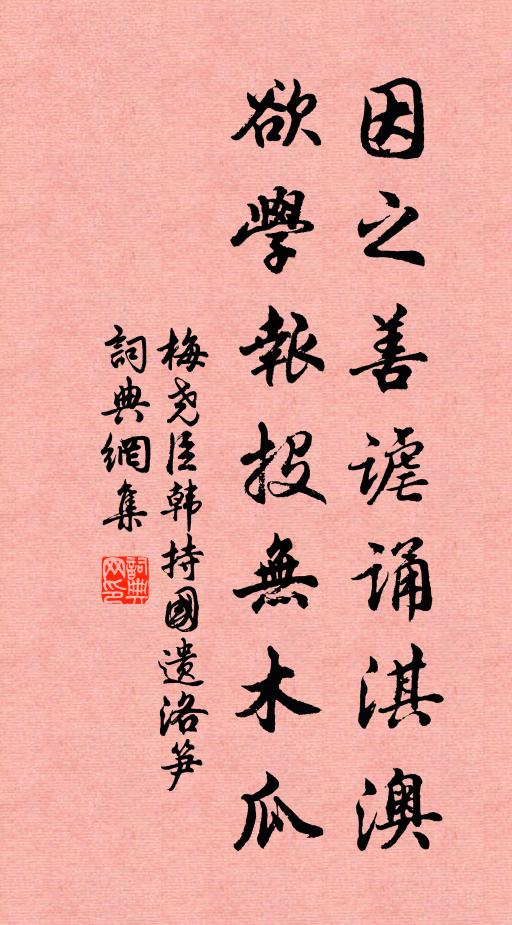 因之善謔誦淇澳
欲學報投無木瓜
梅尧臣韩持國遗洛笋
詞典網集
詞典网印